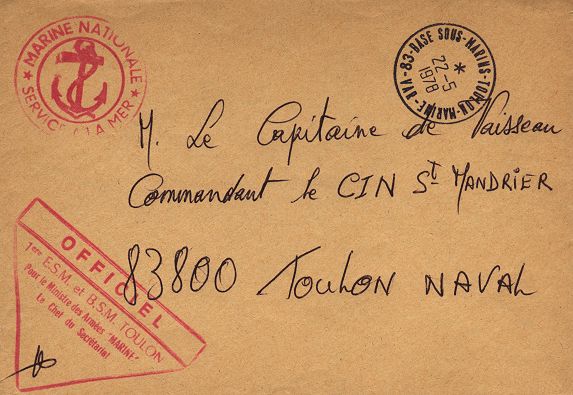 MARINE NATIONALE
★ SERVICE A LA MER ★
83-BASE SOUS-MARINS-TOULON-MARINE-BVA
*
22-5
1978
M. Le Capitaine de Vaisseau
Commandant le CIN St MANDRIER
83800 TOULON NAVAL
OFFICIEL
1ère E.S.M. et B.S.M. TOULON
Pour le Ministre des Armées "MARINE"
Le Chef du Secrétariat